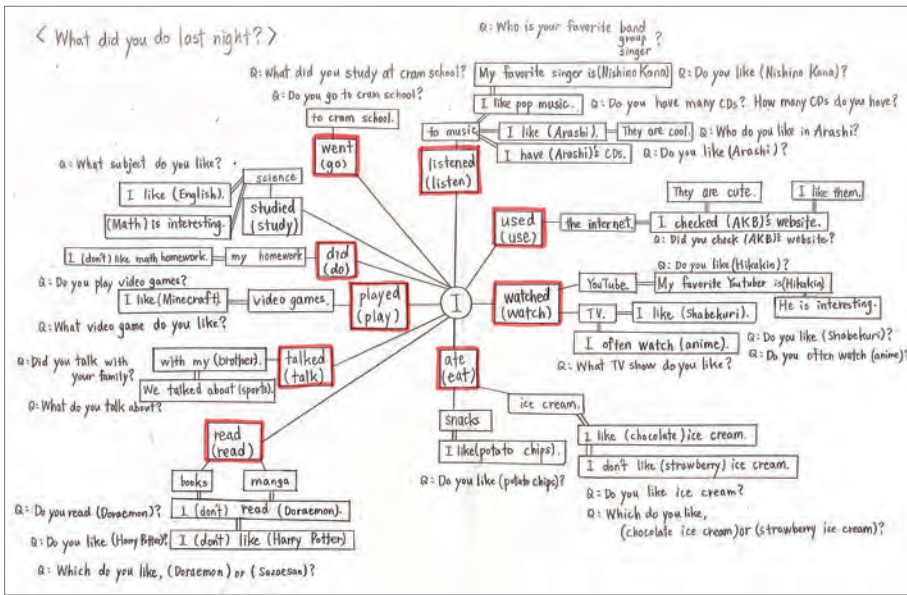 < What did you do last night? >
Q: Who is your favorite band
group
singer ?
Q: What did you study at cram school?
My favorite singer is (Nishino Kana)
Q: Do you like (Nishino Kana)?
Q: Do you go to cram school?
I like pop music.
Q: Do you have many CDs? How many CDs do you have?
to cram school.
to music
I like (Arashi).
They are cool.
Q: Who do you like in Arashi?
I have (Arashi)'s CDs.
Q: Do you like (Arashi)?
went
(go)
listened
(listen)
Q: What subject do you like?
science
I like (English).
(Math) is interesting.
studied
(study)
They are cute.
I like them.
used
(use)
the internet.
I checked (AKB)'s website.
Q: Did you check (AKB)'s website?
I (don't) like math homework.
my homework
did
(do)
Q: Do you play video games?
I like (Minecraft).
video games.
played
(play)
Q: What video game do you like?
I
Q: Do you like (Hikakin)?
watched
(watch)
YouTube.
My favorite Youtuber is (Hikakin)
He is interesting.
TV.
I like (Shabekuri).
Q: Do you like (Shabekuri)?
I often watch (anime).
Q: Do you often watch (anime)?
Q: What TV show do you like?
Q: Did you talk with
your family?
with my (brother).
talked
(talk)
We talked about (sports).
Q: What do you talk about?
ate
(eat)
ice cream.
snacks
I like (potato chips).
Q: Do you like (potato chips)?
I like (chocolate) ice cream.
I don't like (strawberry) ice cream.
Q: Do you like ice cream?
Q: Which do you like,
(chocolate ice cream) or (strawberry ice cream)?
read
(read)
books
manga
Q: Do you read (Doraemon)?
I (don't) read (Doraemon).
Q: Do you like (Harry Potter)?
I (don't) like (Harry Potter)
Q: Which do you like, (Doraemon) or (Sazaesan)?